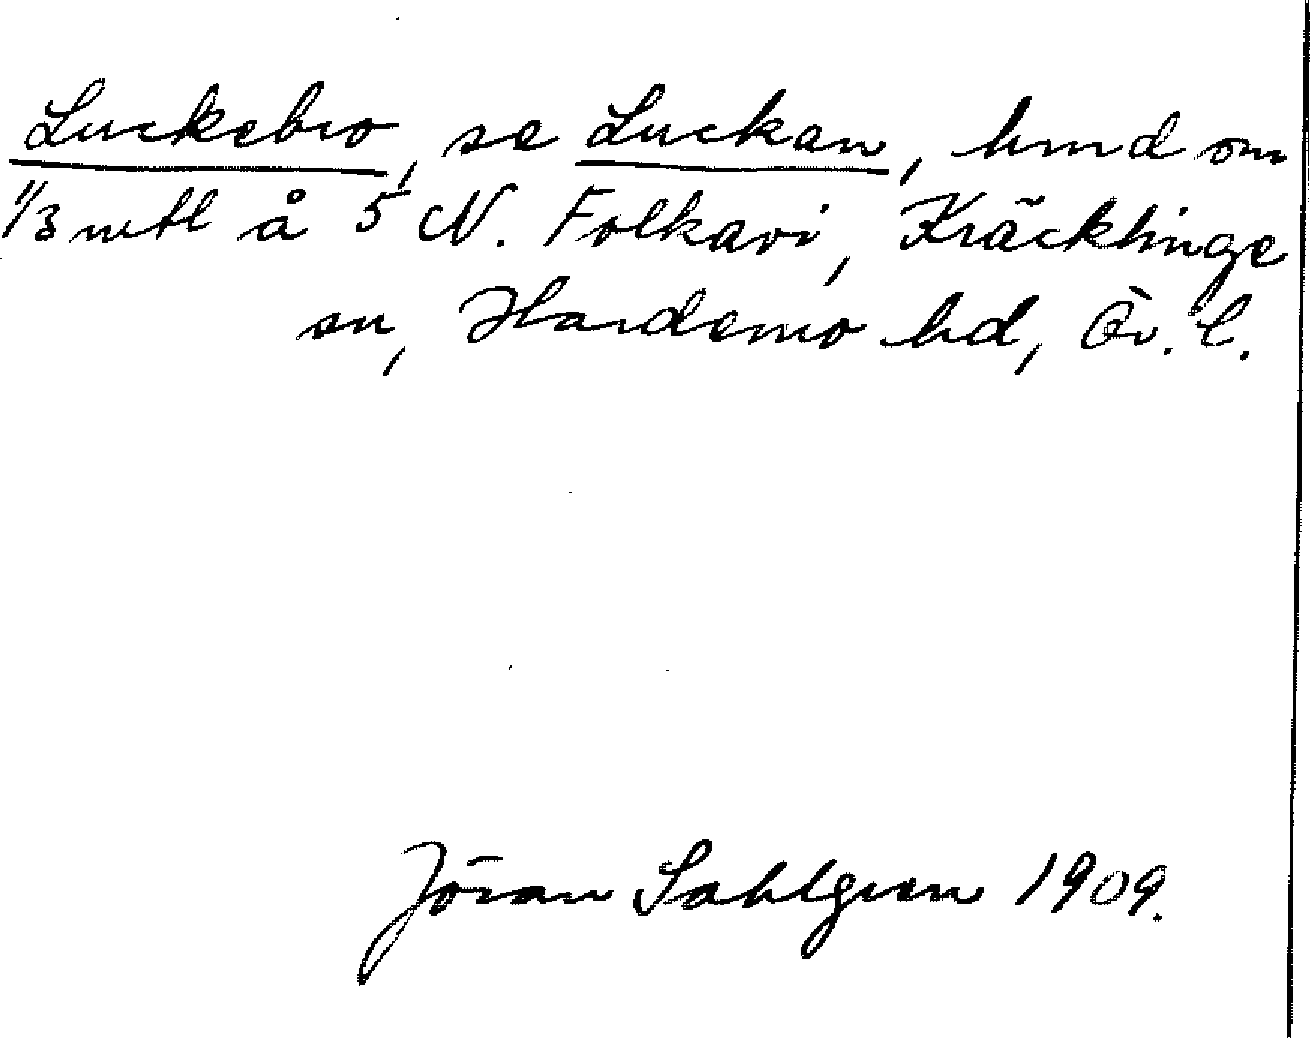 Luckebro, se Luckan, hmd om
1/3 mtl å 5 N. Folkavi, Kräcklinge
sn, Hardemo hd, Ör. l.
Jöran Sahlgren 1909.